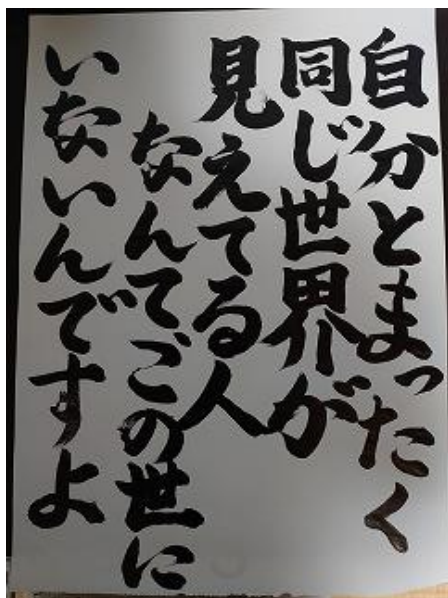 自分とまったく
同じ世界が
見えてる人
なんてこの世に
いないんですよ